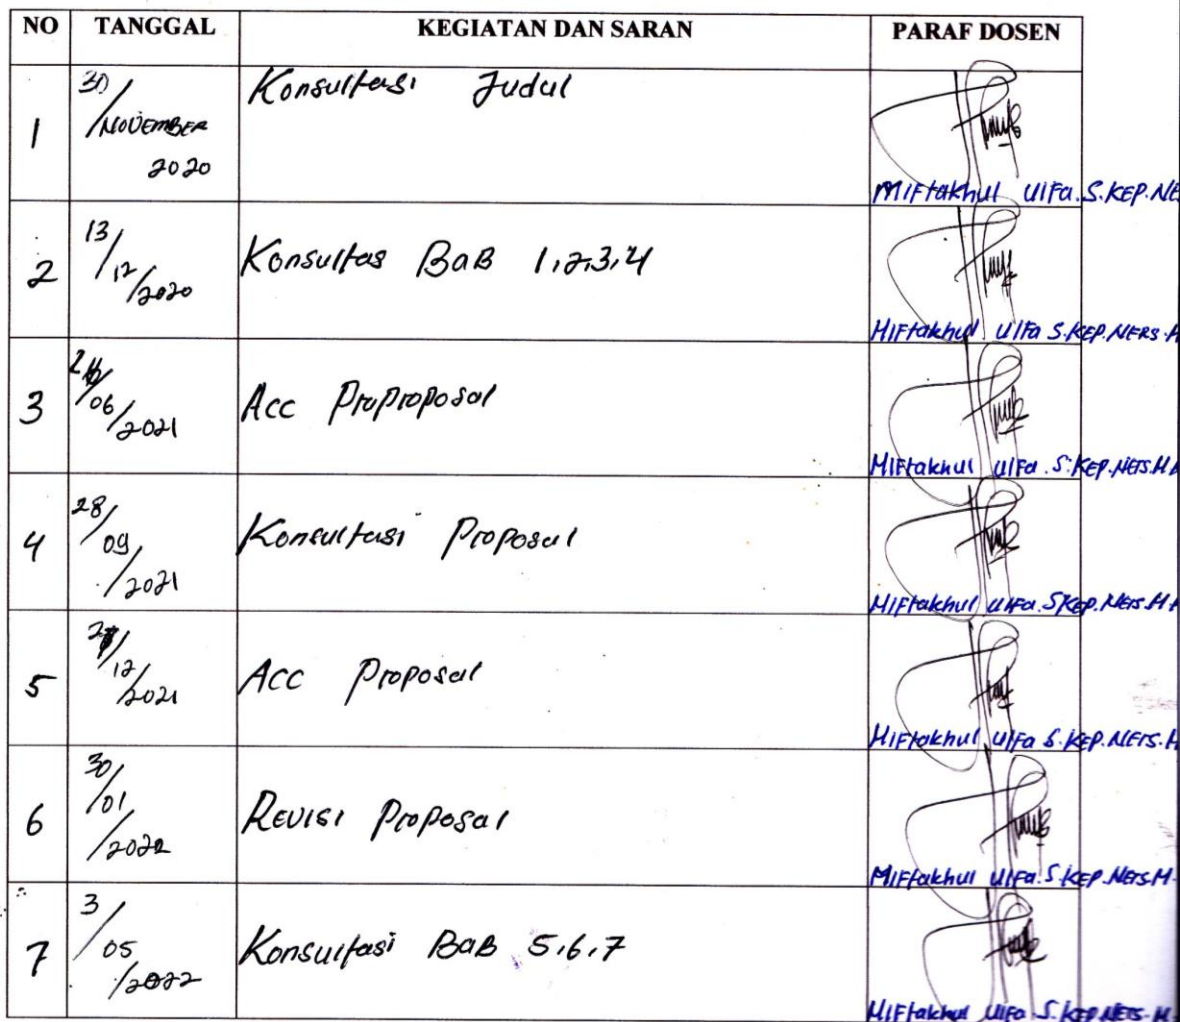 NO TANGGAL KEGIATAN DAN SARAN PARAF DOSEN
1 30/NOVEMBER 2020 Konsultasi Judul
Miftakhul Ulfa. S.KEP.NE
2 13/12/2020 Konsultas BaB 1,2,3,4
Miftakhul Ulfa S.KEP.NERS.
3 /06/2021 Acc Praproposal
Miftakhul Ulfa. S.KEP.NERS.M
4 28/09/2021 Konsultasi Proposal
Miftakhul Ulfa. SKEP.NERS.M
5 /12/2021 Acc Proposal
Miftakhul Ulfa S.KEP.NERS.
6 30/01/2022 Revisi Proposal
Miftakhul Ulfa. S.KEP.NERS.M
7 3/05/2022 Konsultasi BaB 5,6,7
Miftakhul Ulfa S.KEP.NERS.M